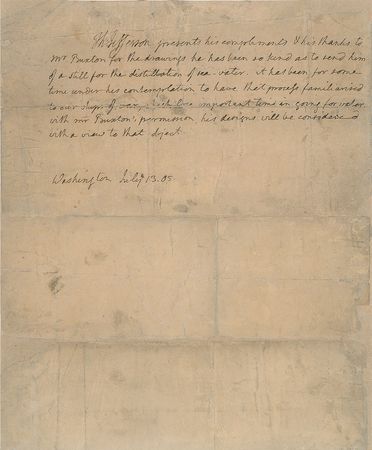 Th Jefferson presents his compliments & his thanks to
Mr Buxton for the drawings he has been so kind as to send him
of a still for the distillation of sea-water. it has been for some
time under his contemplation to have that process familiarised
to our ships of war, important time in going for water.
with mr Buxton's permission his designs will be considered
with a view to that object.
Washington July 13. 05